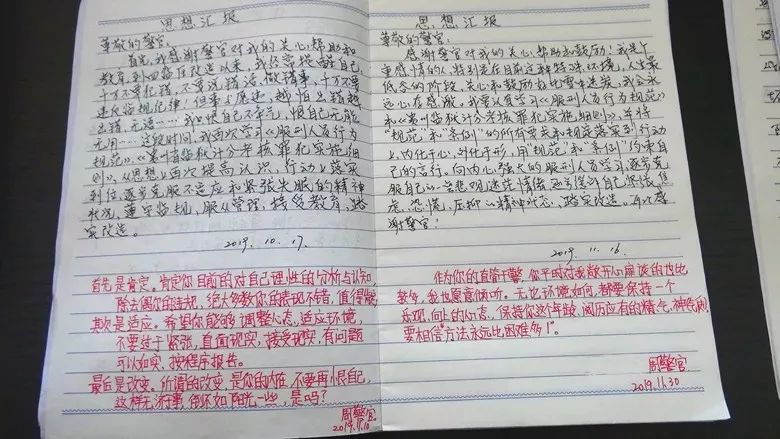 思想汇报
尊敬的警官:
首先,我感谢警官对我的关心、帮助和
教育,到四监区改造以来,我经常提醒自己,
千万不要犯错,不要说错话做错事,千万不要
违反监规纪律!但事与愿违,越怕出错越
出错,无语……我口恨自己不争气,恨自己无能
无用……这段时间,我再次学习《服刑人员行为
规范》、《贵州省监狱计分考核罪犯实施细
则》。从思想上再次提高认识,行动上落实
到位,逐步克服不适应和紧张失眠的精神
状况,遵守监规,服从管理,接受教育,踏
实改造。
2019.10.17.
首先是肯定。肯定你目前的对自己理性的分析与认知,
除去偶尔的违规,绝大多数你的表现不错,值得
其次是适应。希望你能够调整心态,适应环境,
不要过于紧张,直面现实,接受现实,有问题
可以如实、按程序报告。
最后是改变。所谓的改变,是你的内在,不要再恨自己,
这样无济于事,倒不如阳光一些,是吗?
周警官
2019.11.10
思想汇报
尊敬的警官:
感谢警官对我的关心、帮助和鼓励!我是个
重感情的人,特别是在目前这种特殊环境,人生最
低谷的阶段,关心和鼓励好比雪中送炭,我会永
远心存感激。我要认真学习《服刑人员行为规范》
和《贵州省监狱计分考核罪犯实施细则》,并将
"规范"和"条例"的所有要求和规范落实到行动
上,内化于心,外化于形,用"规范"和"条例"约束自
己的言行。向内心强大的服刑人员学习,逐步克
服自己的悲观迷茫情绪还有缓解自己紧张焦
虑、恐慌、压抑的精神状态,踏实改造。再次感
谢警官!
2019.11.16.
作为你的直管干警,你平时对我敞开心扉谈的也比
较多,我也愿意倾听。无论环境如何,都要保持一个
乐观、向上的心态,保持你这个年龄、阅历应有的精气神
要相信"方法永远比困难多!"。
周警官
2019.11.30